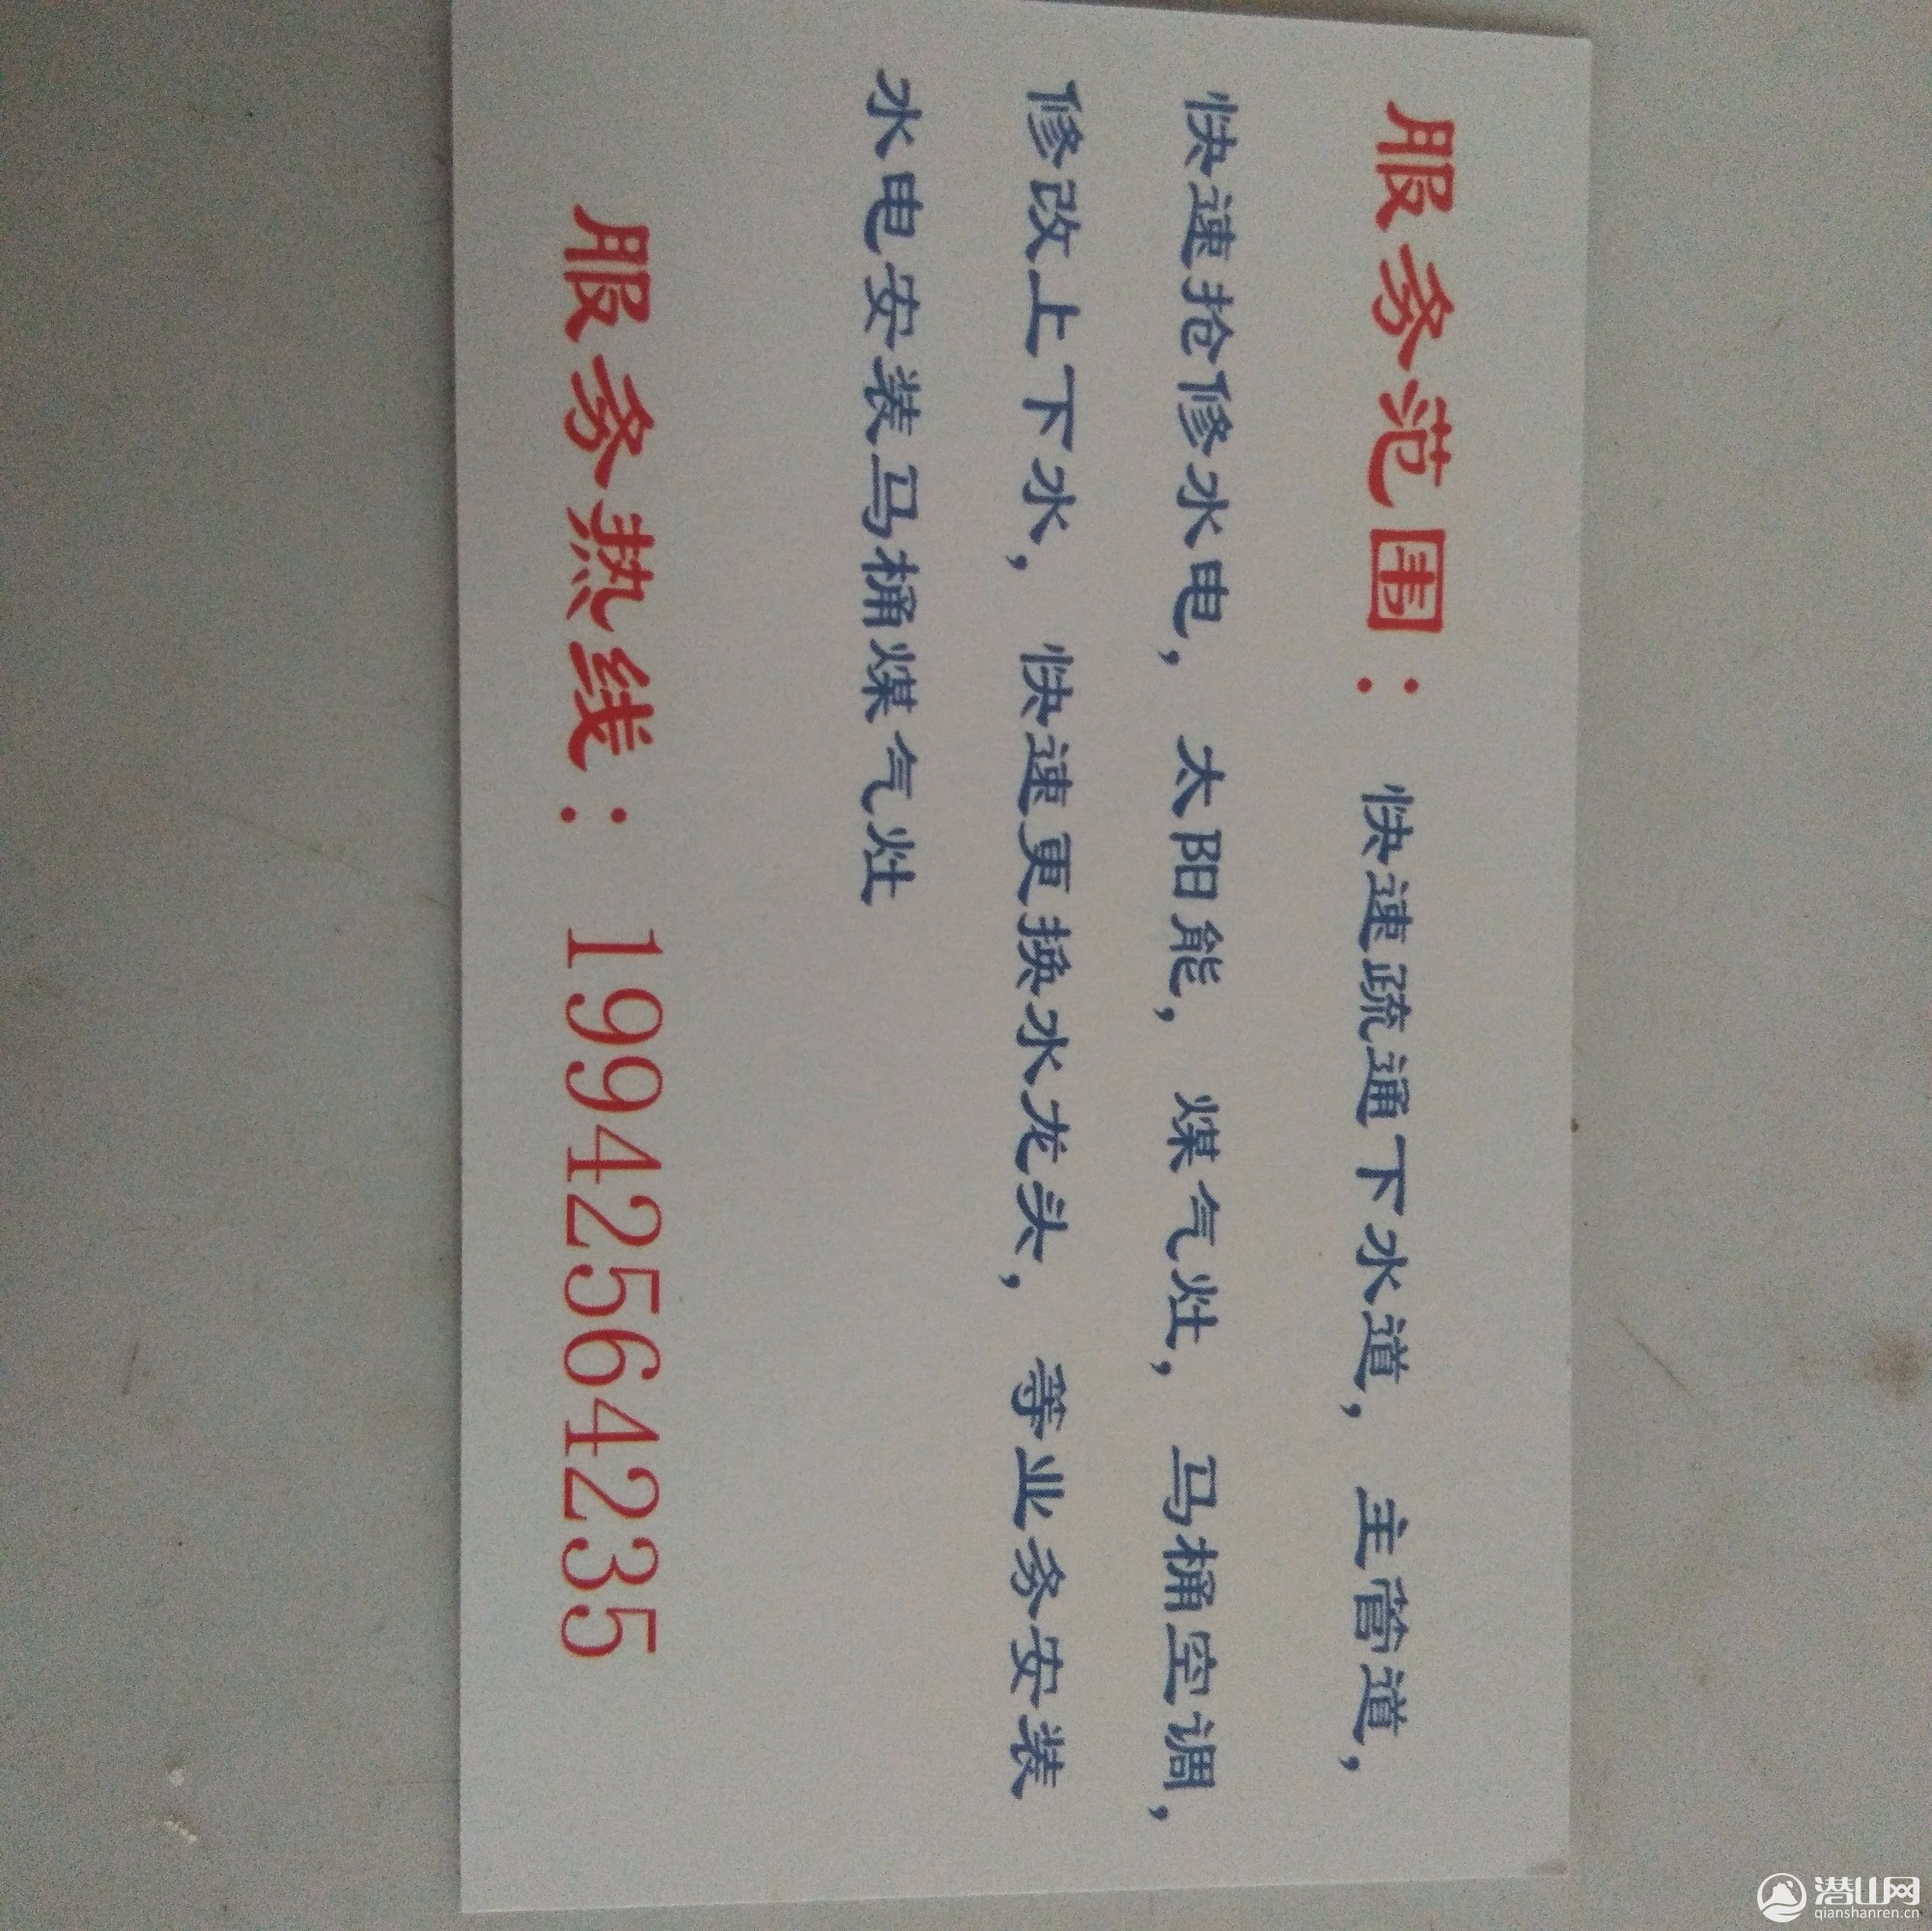 服务范围：快速疏通下水道，主管道，
快速抢修水电，太阳能，煤气灶，马桶空调，
修改上下水，快速更换水龙头，等业务安装
水电安装马桶煤气灶
服务热线：19942564235
潜山网
qianshanren.cn